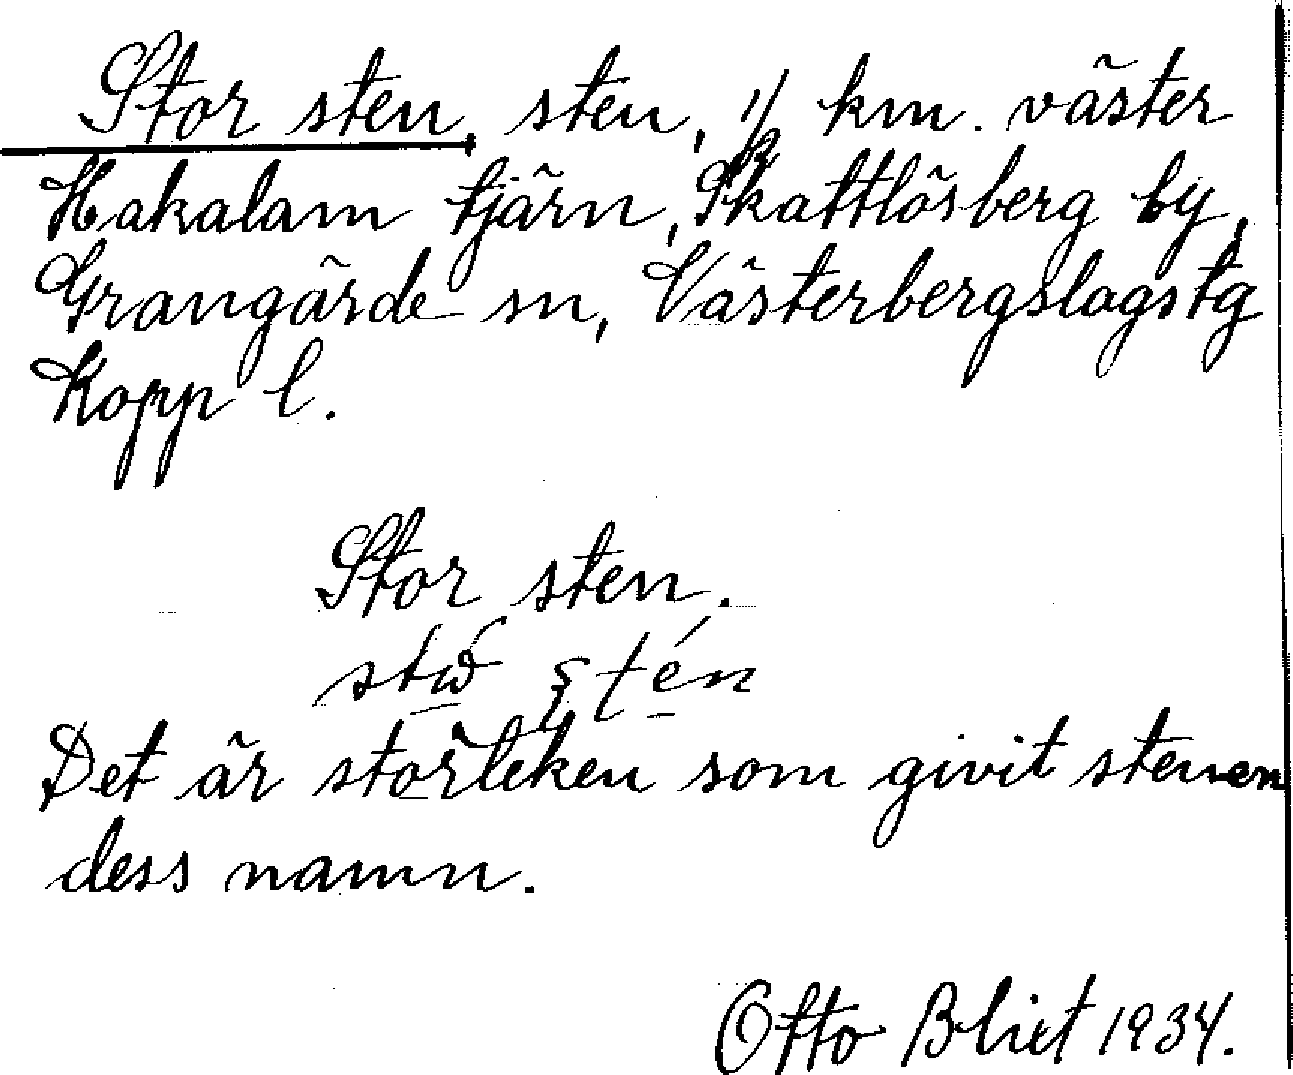 Stor sten, sten, 1/2 km. väster
Hakalam tjärn, Skattlösberg by,
Grangärde sn, Västerbergslagstg
Kopp l.
Stor sten.
Det är storleken som givit stenen
dess namn.
Otto Blixt 1934.